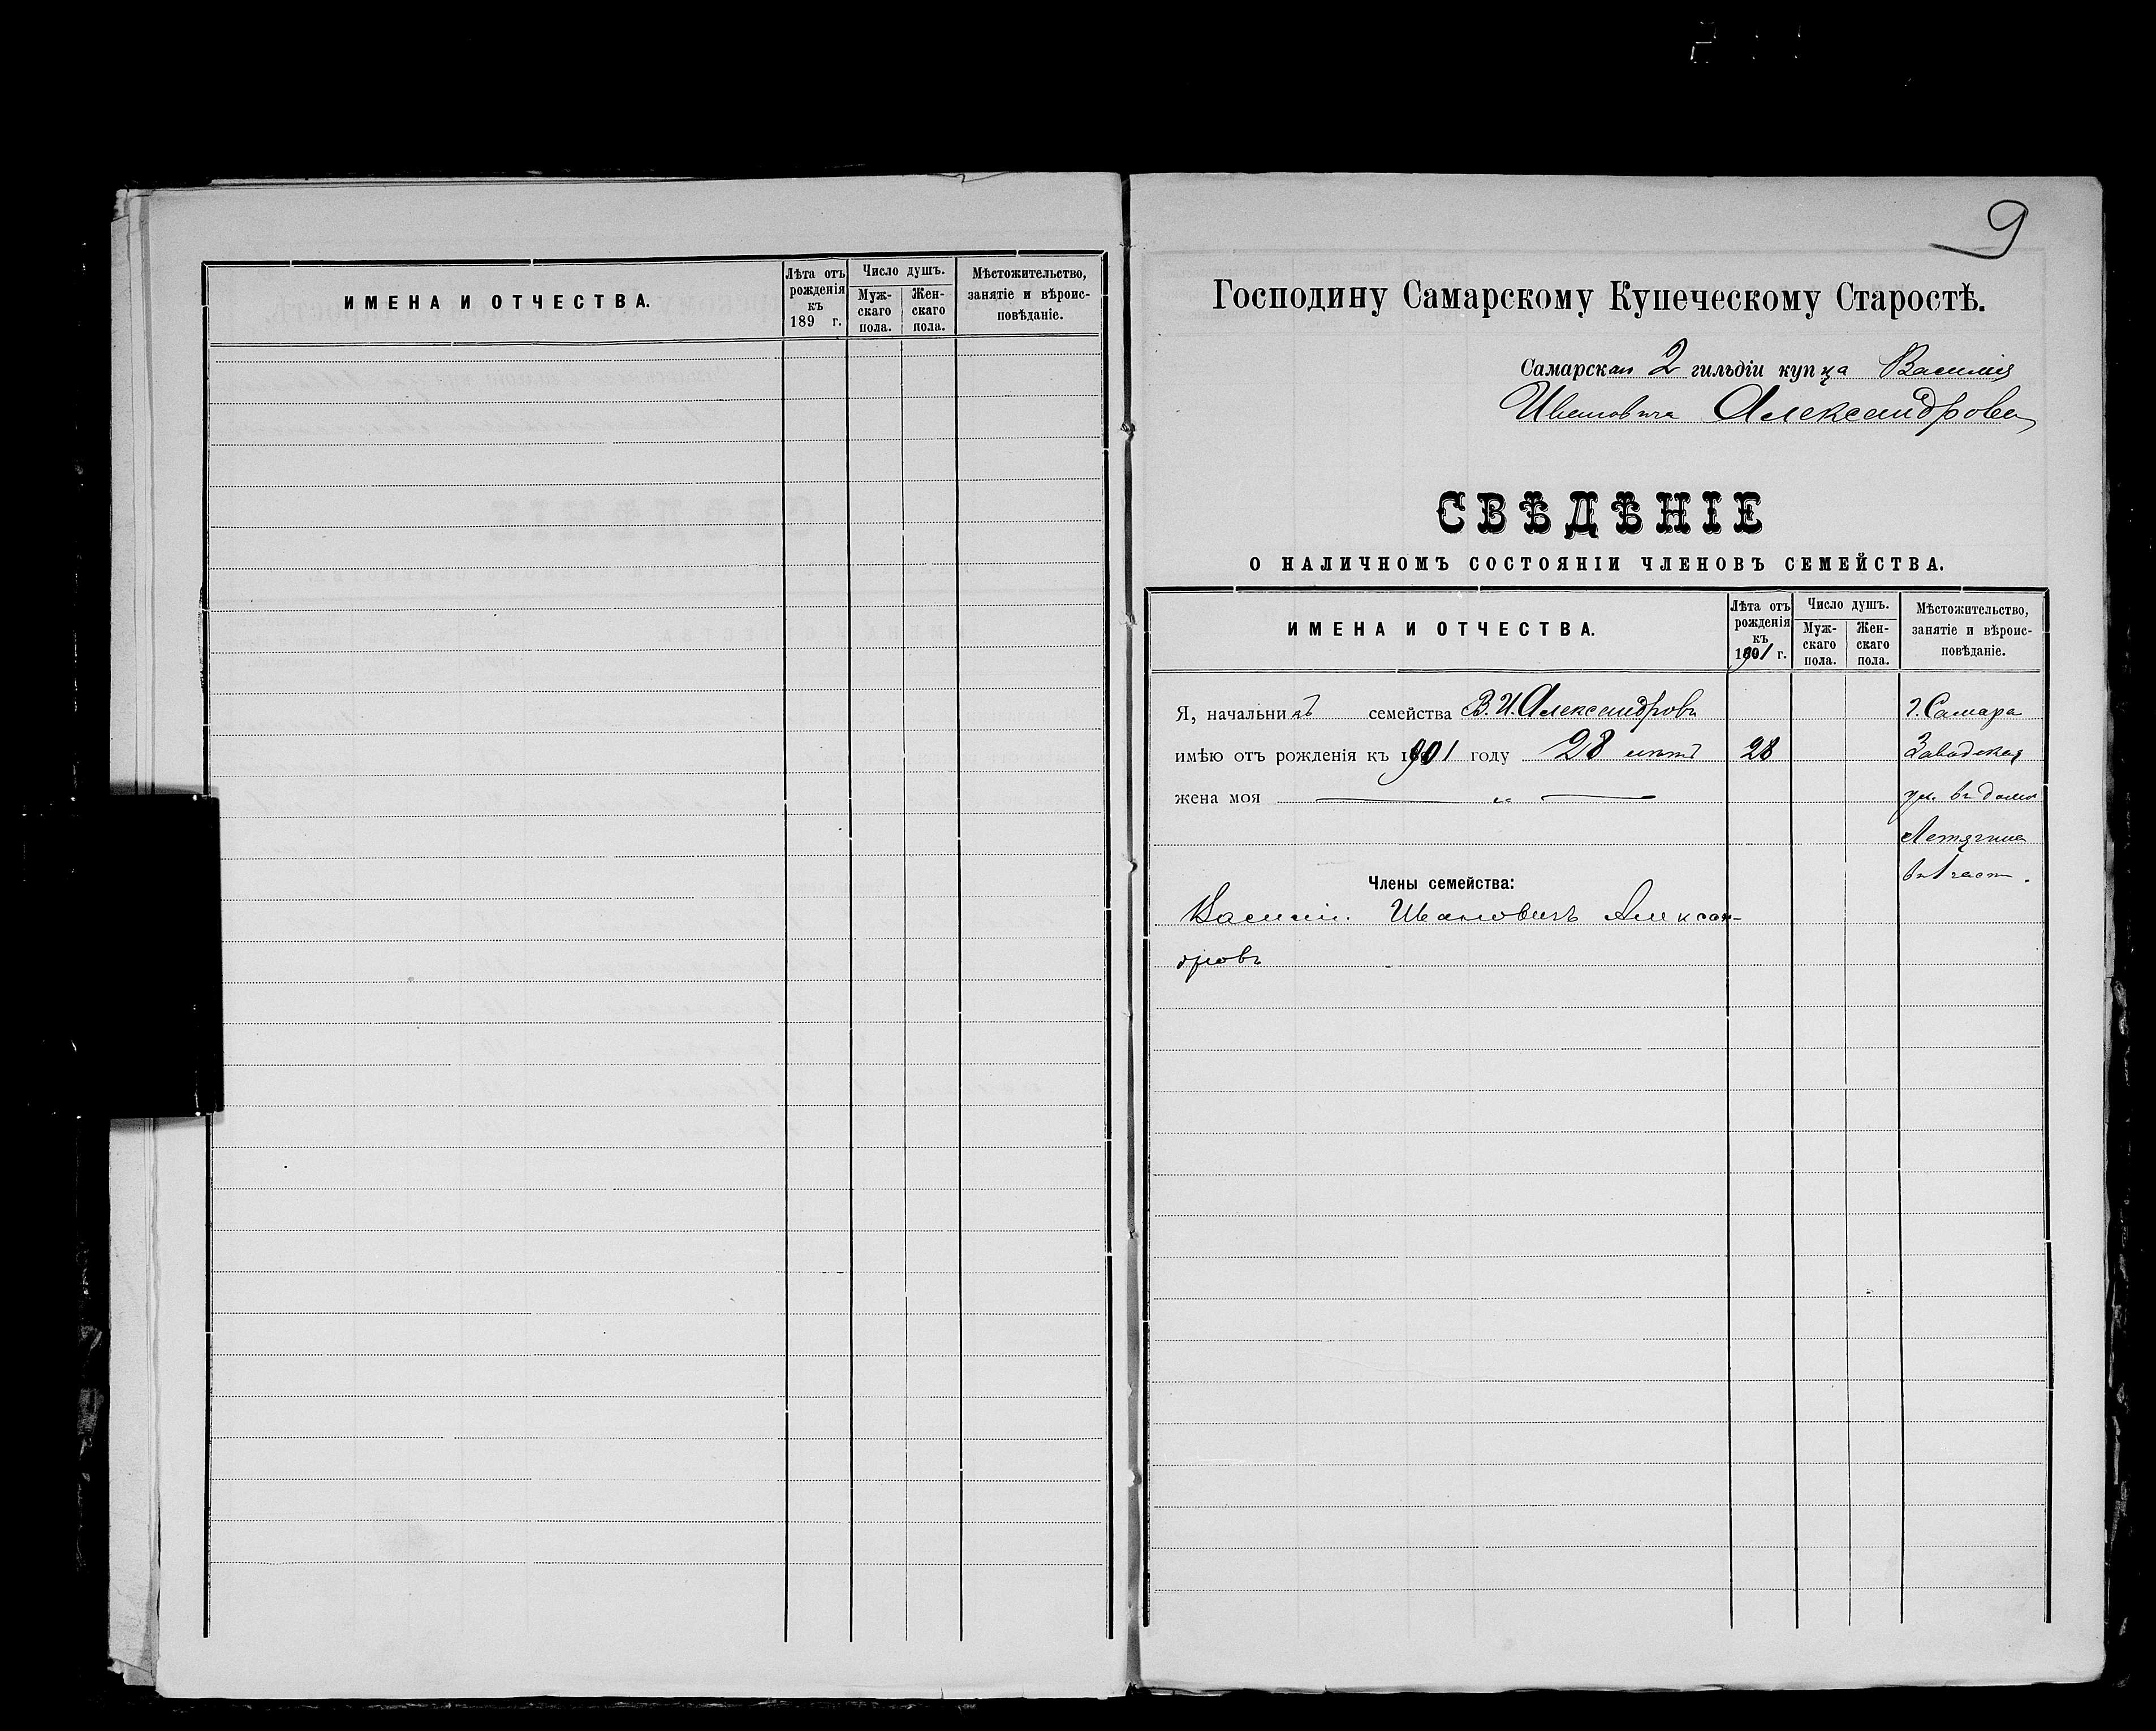 ИМЕНА И ОТЧЕСТВА.
Лѣта отъ рожденія къ 189 г.
Число душъ.
Мужскаго пола.
Женскаго пола.
Мѣстожительство, занятіе и вѣроисповѣданіе.
9
Господину Самарскому Купеческому Старостѣ.
Самарскаго 2 гильдіи купца Василія
Ивановича Александрова
СВѢДѢНІЕ
О НАЛИЧНОМЪ СОСТОЯНІИ ЧЛЕНОВЪ СЕМЕЙСТВА.
ИМЕНА И ОТЧЕСТВА.
Лѣта отъ рожденія къ 1901 г.
Число душъ.
Мужскаго пола.
Женскаго пола.
Мѣстожительство, занятіе и вѣроисповѣданіе.
Я, начальникъ семейства В. И. Александровъ г. Самара
имѣю отъ рожденія къ 1901 году 28 лѣтъ 28 Заводская
жена моя — „ — ул. въ домѣ
Летягина
Члены семейства: въ 1 части.
Василій Ивановичъ Алексан-
дровъ